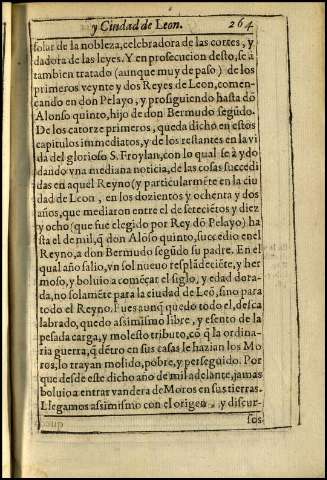 y Ciudad de Leon. 264
solar de la nobleza, celebradora de las cortes, y
dadora de las leyes. Y en prosecucion desto, se à
tambien tratado (aunque muy de paso) de los
primeros veynte y dos Reyes de Leon, comen-
çando en don Pelayo, y prosiguiendo hasta dõ
Alonso quinto, hijo de don Bermudo segũdo.
De los catorze primeros, queda dicho en estos
capitulos immediatos, y de los restantes en la vi
da del glorioso S. Froylan, con lo qual se à ydo
dando vna mediana noticia, de las cosas succedi
das en aquel Reyno (y particularmẽte en la ciu
dad de Leon, en los dozientos y ochenta y dos
años, que mediaron entre el de seteciẽtos y diez
y ocho (que fue elegido por Rey dõ Pelayo) ha
sta el de mil, q̃ don Alõso quinto, succedio en el
Reyno, a don Bermudo segũdo su padre. En el
qual año salio, vn sol nueuo resplãdeciẽte, y her
moso, y boluio a començar el siglo, y edad dora-
da, no solamẽte para la ciudad de Leõ, sino para
todo el Reyno. Pues aunq̃ quedo todo el, desca
labrado, quedo assimismo libre, y esento de la
pesada carga, y molesto tributo, cõ q̃ la ordina-
ria guerra, q̃ dẽtro en sus casas le hazian los Mo
ros, lo trayan molido, pobre, y perseguido. Por
que desde este dicho año de mil adelante, jamas
boluio a entrar vandera de Moros en sus tierras.
Llegamos assimismo con el origen, y discur-
sos